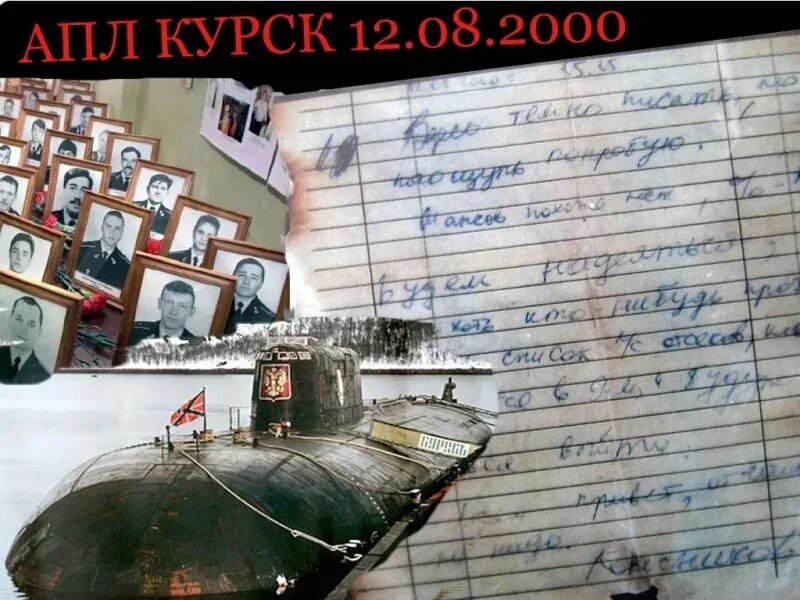 АПЛ КУРСК 12.08.2000
15.15
темно писать, но
наощупь попробую.
Шансов похоже нет, %-
Будем надеяться,
хоть кто-нибудь
список л/с отсеков,
в 9-м и будут
выйти.
привет,
не надо.
Колесников